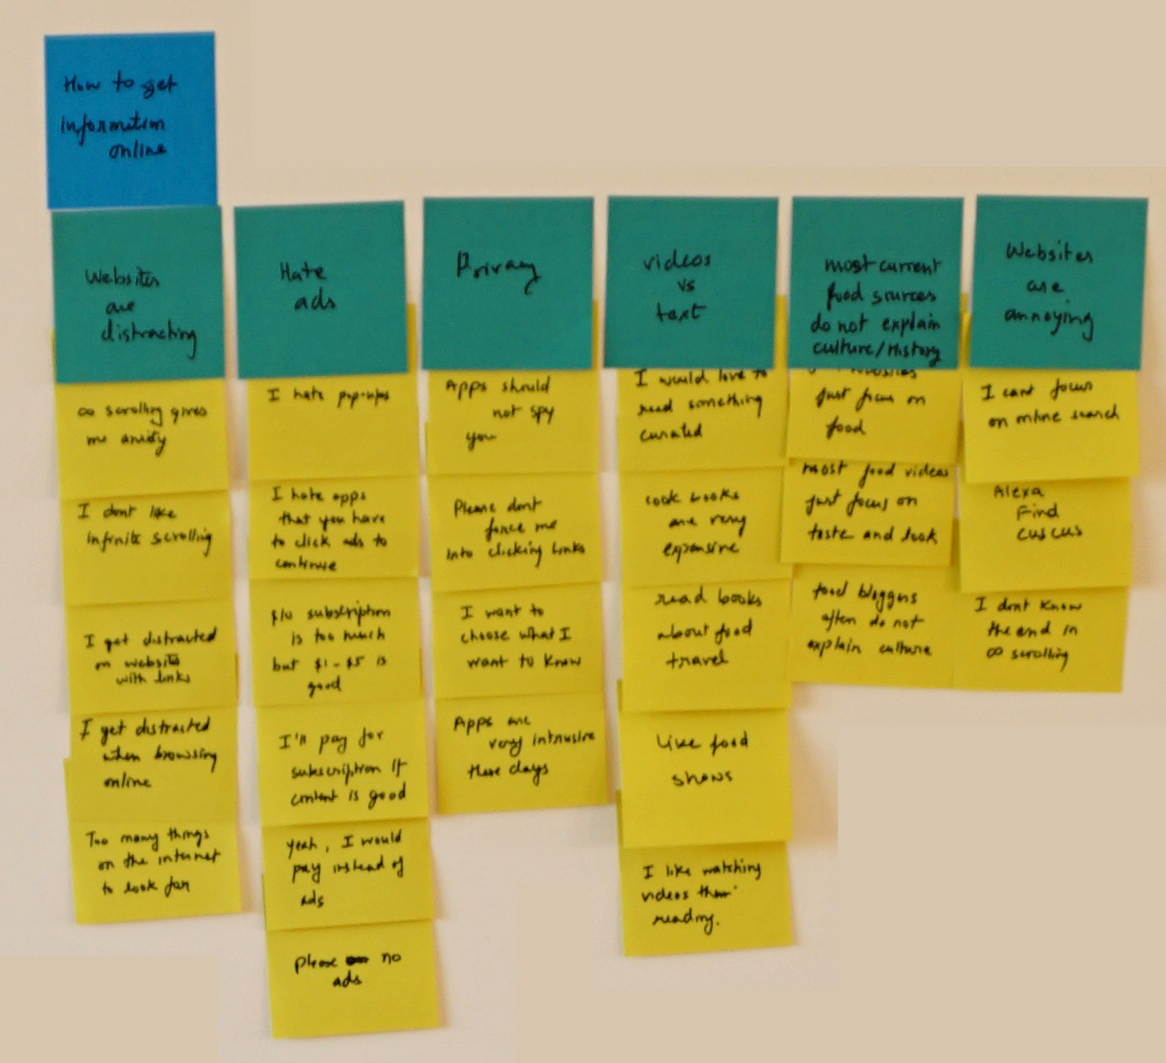 How to get
information
online
Websites
are
distracting
∞ scrolling gives
me anxity
I dont like
Infinite scrolling
I get distracted
on website
with links
I get distracted
when browsing
online
Too many things
on the internet
to look for
Hate
ads
I hate pop-ups
I hate apps
that you have
to click ads to
continue
$10 subscription
is too much
but $1-$5 is
good
I'll pay for
subscription If
content is good
yeah, I would
pay instead of
ads
please no
ads
Privacy
Apps should
not spy
you
Please dont
force me
Into clicking links
I want to
choose what I
want to know
Apps are
very intrusive
these days
videos
vs
text
I would love to
read something
curated
cook books
are very
expensive
read books
about food
travel
Like food
shows
I like watching
videos than
reading.
most current
food sources
do not explain
culture/History
websites
Just focus on
food
most food videos
Just focus on
taste and look
food bloggers
often do not
explain culture
Websites
are
annoying
I cant focus
on online search
Alexa
Find
cuscus
I dont know
the end in
∞ scrolling